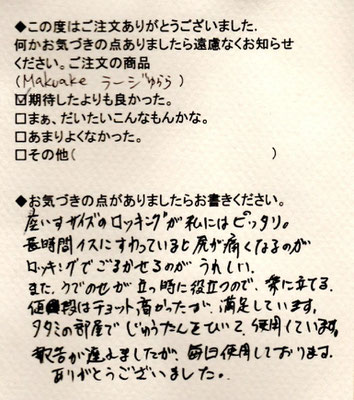 ◆この度はご注文ありがとうございました.
何かお気づきの点ありましたら遠慮なくお知らせ
ください。ご注文の商品
(Makuake ラージゆらら)
☑期待したよりも良かった。
□まぁ、だいたいこんなもんかな。
□あまりよくなかった。
□その他( )
◆お気づきの点がありましたらお書きください。
座いすサイズのロッキングが私にはピッタリ。
長時間イスにすわっていると尻が痛くなるのが
ロッキングでごまかせるのがうれしい.
また.ウでのせが立つ時に役立つので、楽に立てる.
値段はチョット高かったが、満足しています。
タタミの部屋でじゅうたんをひいて、使用しています。
報告が遅れましたが、毎日使用しております.
ありがとうございました。